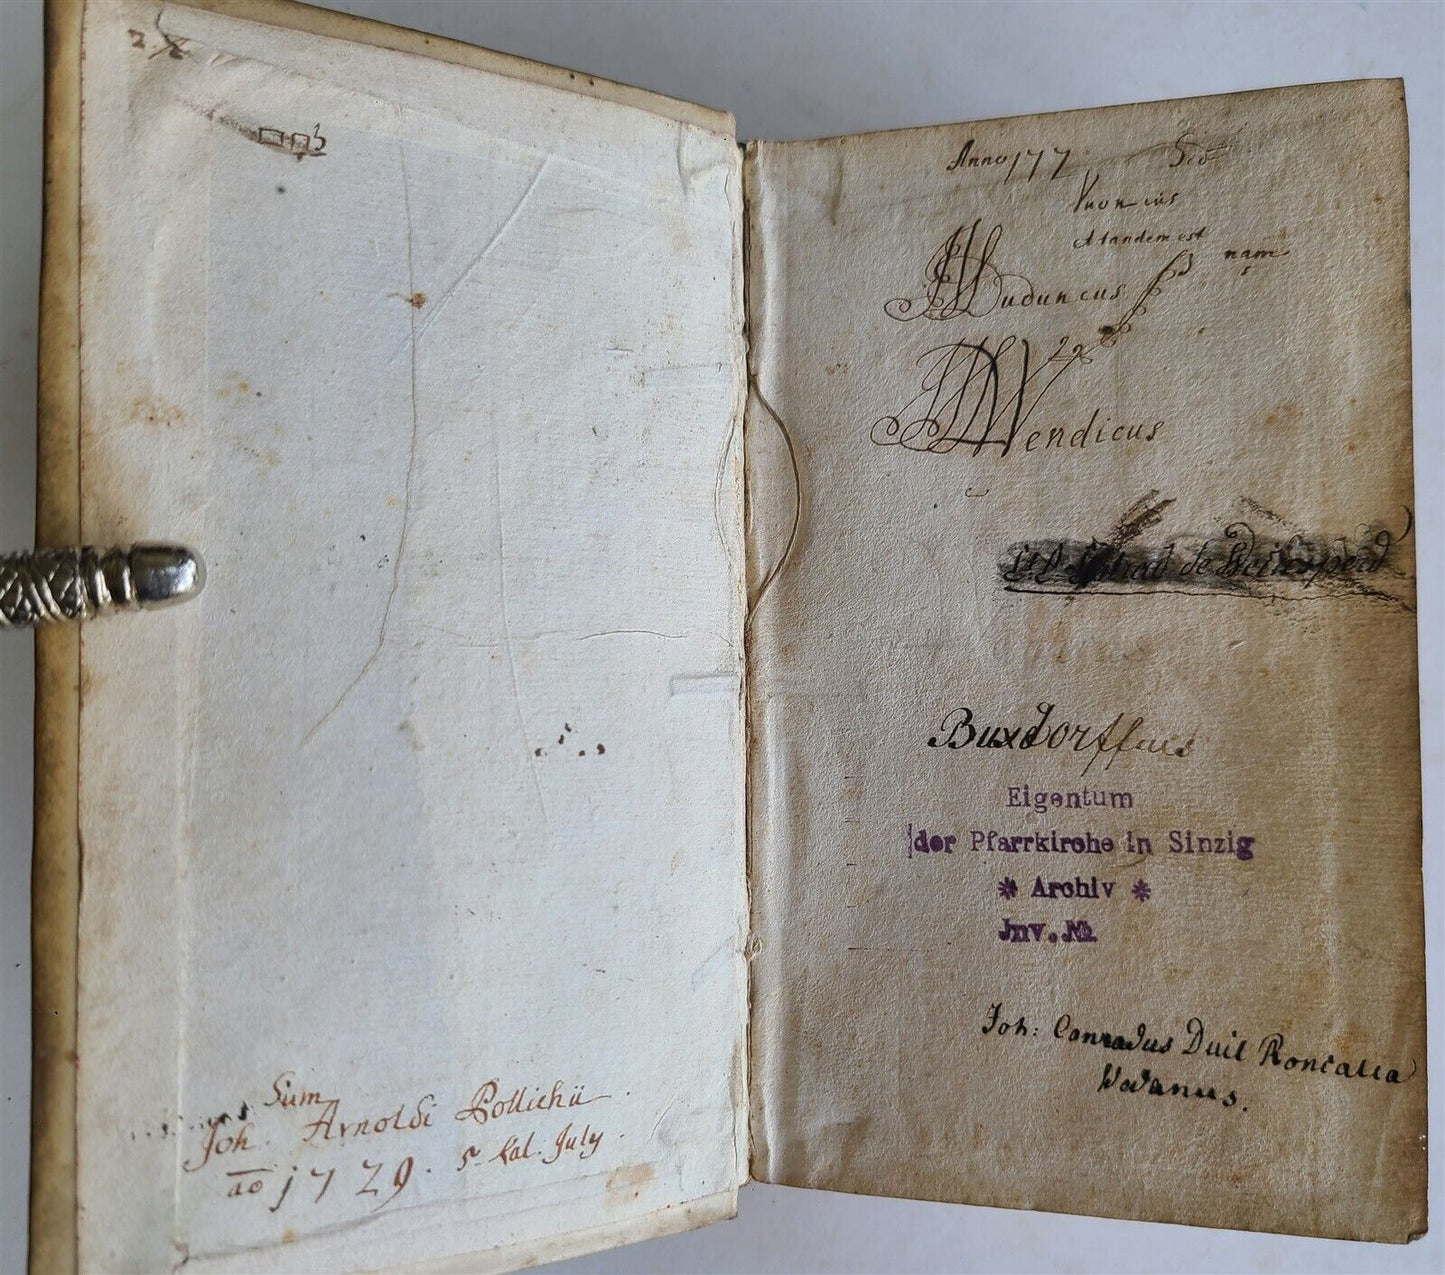 Sum
Joh. Arnoldi Pollichii
ao 1729. 5 kal. July.
Anno 177
A tandem est
nam
Wuduncus
Wendicus
de
Buxdorffius
Eigentum
der Pfarrkirche in Sinzig
* Archiv *
Jnv. №
Joh: Conradus Duil Roncalia
Wadanus.